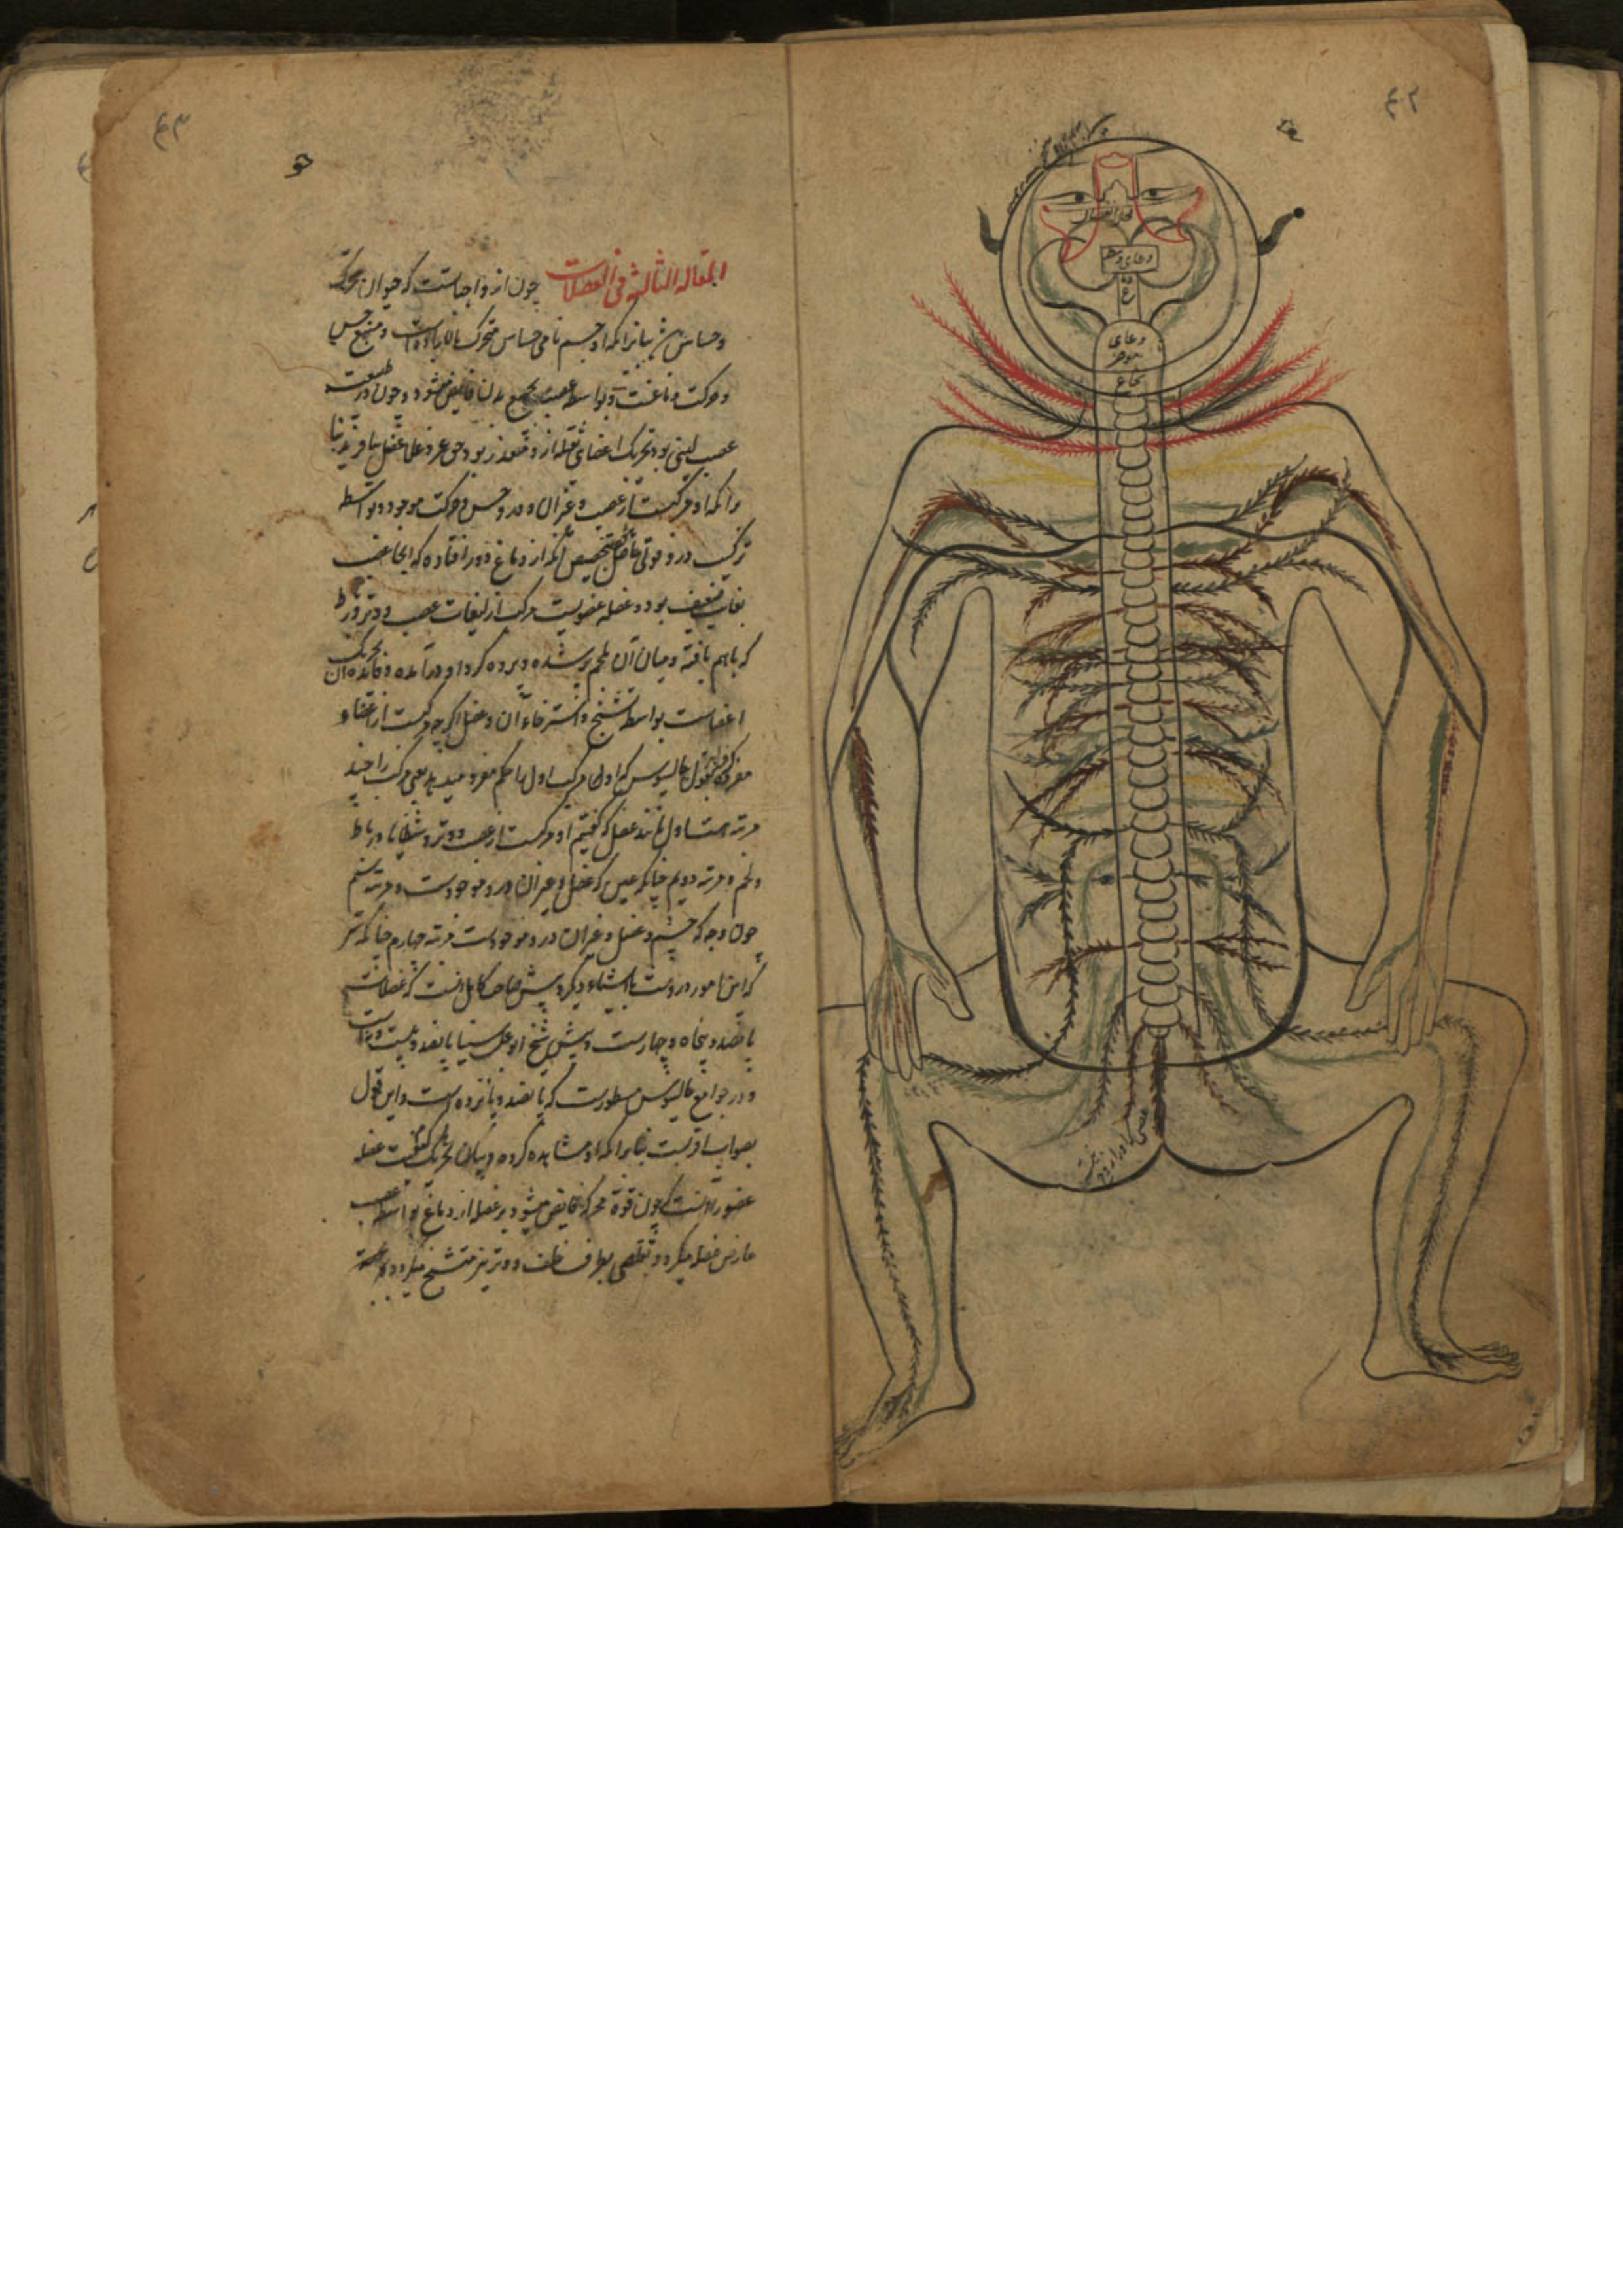 المقاله الثالثه فی العضلات چون از واجباست که حیوان متحرک
وحساس باشد بنابرانکه او جسم نامی حساس متحرک بالاراده است و منبع حس
وحرکت دماغست و بواسطه عصب بجمیع بدن فایض میشود و چون در طبیعت
عصب لینی بود و تحریک اعضای ثقیله ازو متعذر بود حق عز وعلا عضل بیافرید بنا
برانکه او مرکبست از عصب و غیر آن و درو حس وحرکت موجود و بواسطه
ترکیب درو قوتی حاصل بتخصیص آنکه از دماغ دور افتاده که آنجا عصب
بغایت ضعیف بود و عضله عضویست مرکب از لیفات عصب و وتر و رباط
که باهم بافته و میان آن بلحم پر شده و پرده گرد او درآمده و فایده آن تحریک
اعضاست بواسطه تشنج و استرخاء آن و عضل اگرچه مرکبست از اعضاء
مفرده بقول جالینوس که اولها مرکب اول را حکم مفرد میدهد یعنی مرکب را چند
مرتبه است اول مانند عضل که گفتیم او مرکبست از عصب و وتر و شظایا و رباط
و لحم و مرتبه دویم چنانکه عین که عضل و غیر آن درو موجودست و مرتبه سیم
چون وجه که چشم و عضل و غیر آن درو موجودست مرتبه چهارم چنانکه سر
که این امور دروست با اشیاء دیگر و پیش صاحب کامل آنست که عضلات
پانصد و پنجاه و چهارست و پیش شیخ ابو علی سینا پانصد و بیست و نه است
و در جوامع جالینوس مسطورست که پانصد و پانزده است و این قول
بصواب اقربست بنابرانکه او مشاهده کرده و بیان کیفیت تحریک عضله
عضو را آنست که چون قوة محرکه فایض میشود بر عضله از دماغ بواسطه عصب
عارض عضله میگردد تقلصی بطرف خلف و وتر نیز متشنج میگردد
وعای وسط
وعای
موخر
نخاع
۴۲
۴۳